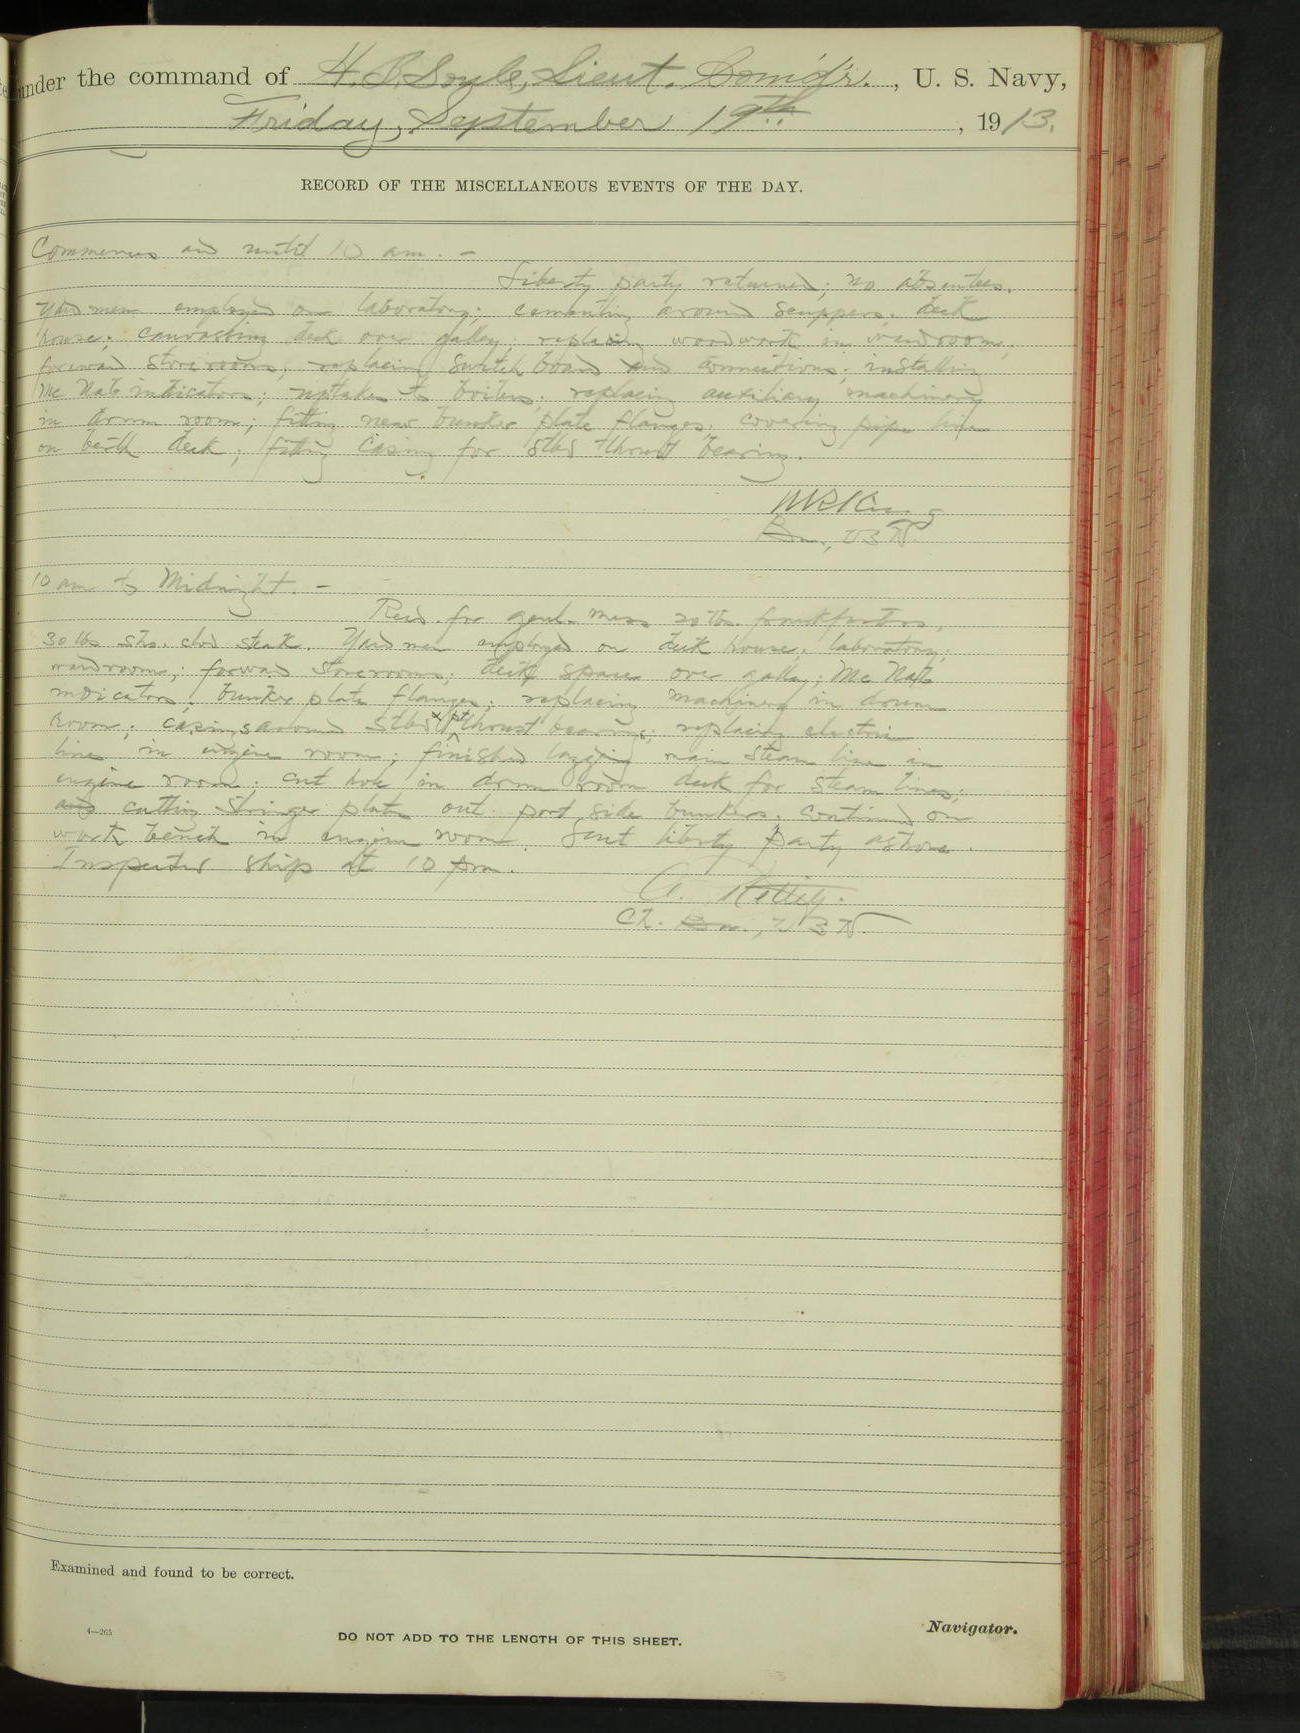 under the command of H. P. Soule, Lieut. Comd'r., U. S. Navy,
Friday, September 19th, 1913.
RECORD OF THE MISCELLANEOUS EVENTS OF THE DAY.
Commences and until 10 am. –
Liberty party returned; no absentees.
Yard men employed on laboratory; cementing around scuppers; deck
house; canvassing deck over galley; replacing woodwork in wardrooms,
forward storerooms; replacing switch board and connections; installing
Mc Nab indicators; uptakes to boilers; replacing auxiliary machinery
in drum room; fitting new bunker plate flanges; covering pipe line
on berth deck; fitting casing for stbd thrust bearing.
King
Bn., U S N
10 am to Midnight. –
Recd. for genl. mess 20 lbs. frankfurters,
30 lbs steak. Yard men employed on deck house; laboratory;
wardrooms; forward storerooms; deck space over galley; Mc Nab
indicators; bunker plate flanges; replacing machinery in drum
room; casings around stbd & pt thrust bearings; replacing electric
lines in engine room; finished lagging main steam line in
engine room; cut hole in drum room deck for steam lines;
and cutting stringer plate out port side bunkers. Continued on
work bench in engine room. Sent liberty party ashore.
Inspected ship at 10 pm.
Ch. Bn., U S N
Examined and found to be correct.
4—265
DO NOT ADD TO THE LENGTH OF THIS SHEET.
Navigator.